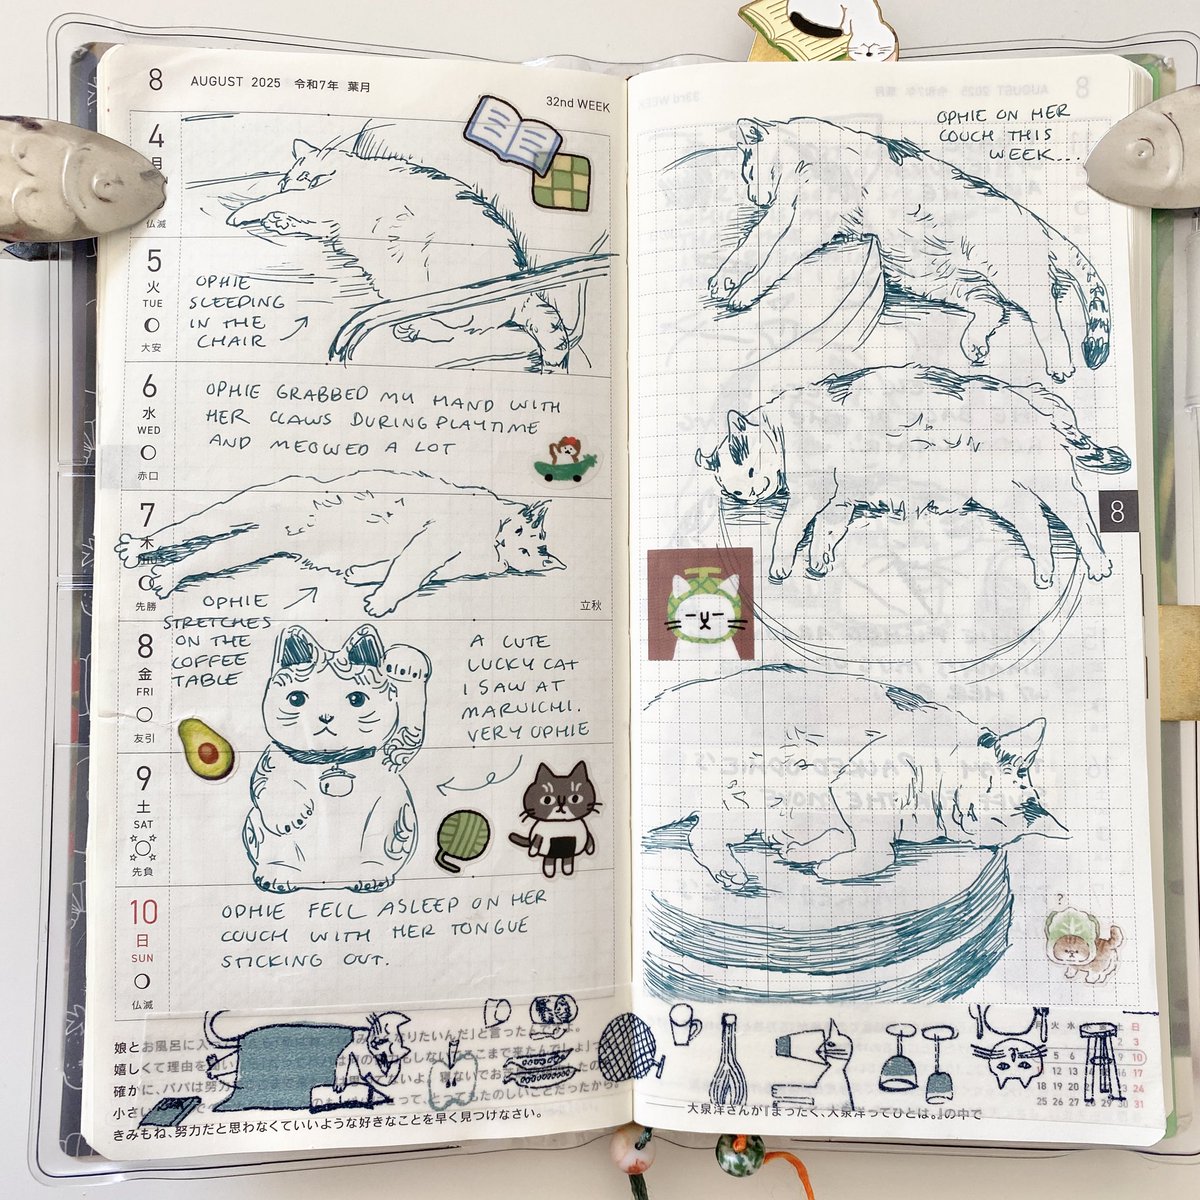 8 AUGUST 2025 令和7年 葉月
32nd WEEK
4
月
仏滅
5
火
TUE
大安
OPHIE
SLEEPING
IN THE
CHAIR
6
水
WED
赤口
OPHIE GRABBED MY HAND WITH
HER CLAWS DURING PLAYTIME
AND MEOWED A LOT
7
木
先勝
立秋
OPHIE
STRETCHES
ON THE
COFFEE
TABLE
8
金
FRI
友引
A CUTE
LUCKY CAT
I SAW AT
MARUICHI.
VERY OPHIE
9
土
SAT
先負
10
日
SUN
仏滅
OPHIE FELL ASLEEP ON HER
COUCH WITH HER TONGUE
STICKING OUT.
娘とお風呂に入
なりたいんだ」と言ったんですよ。
嬉しくて理由を
確かに、パパは努力
小さい
きみもね、努力だと思わなくていいような好きなことを早く見つけなさい。
OPHIE ON HER
COUCH THIS
WEEK...
8
?
大泉洋さんが『まったく、大泉洋ってひとは。』の中で
月 火 水 土 日
2 3
5 6 10
12 13 16 17
18 19 20 21 22 23 24
25 26 27 28 29 30 31